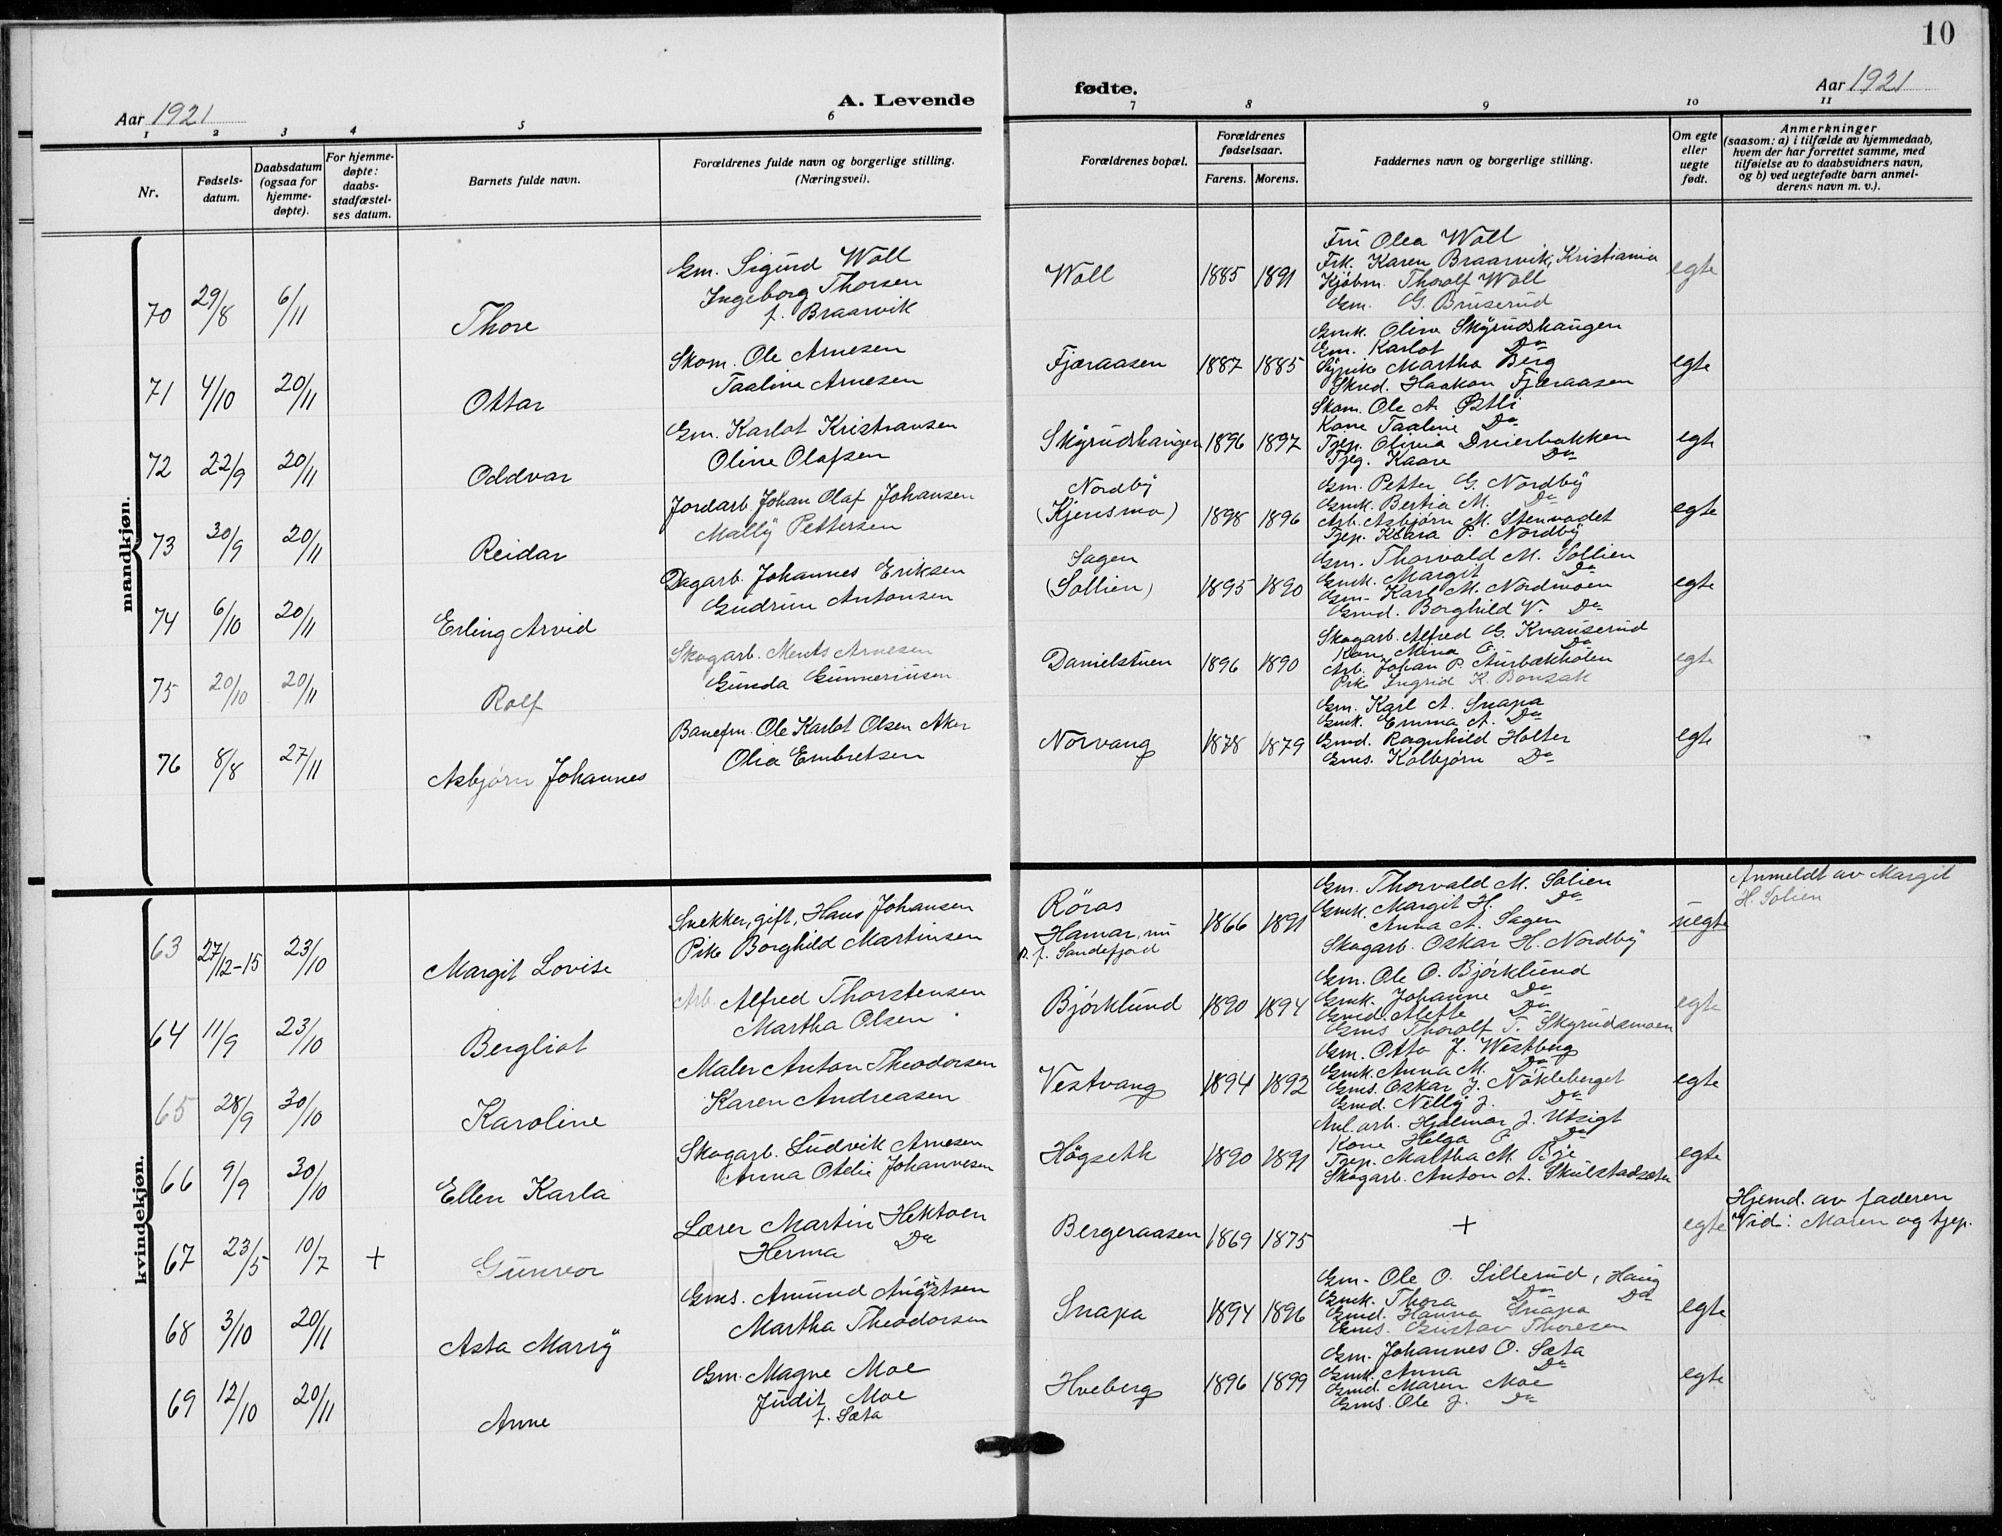 10
Aar 1921
A. Levende
fødte.
Aar 1921
1 2 3 4 5 6 7 8 9 10 11
Nr.
Fødsels-
datum.
Daabsdatum
(ogsaa for
hjemme-
døpte).
For hjemme-
døpte:
daabs-
stadfæstel-
ses datum.
Barnets fulde navn.
Forældrenes fulde navn og borgerlige stilling.
(Næringsvei).
Forældrenes bopæl.
Forældrenes
fødselsaar.
Farens. Morens.
Faddernes navn og borgerlige stilling.
Om egte
eller
uegte
født.
Anmerkninger
(saasom: a) i tilfælde av hjemmedaab,
hvem der har forrettet samme, med
tilføielse av to daabsvidners navn,
og b) ved uegtefødte barn anmel-
derens navn m. v.).
mandkjøn.
70 29/8 6/11 Thore
Gm. Sigurd Woll
Ingeborg Thorsen
f. Braarvik
Woll 1885 1891
Fru Olea Woll
Frk. Karen Braarvik, Kristiania
Kjøbm. Thorolf Woll
Gm. G. Bruserud
egte
71 4/10 20/11 Ottar
Skom. Ole Arnesen
Taaline Arnesen
Fjæraasen 1887 1885
Gmk. Oline Skyrudshaugen
Gm. Karlot Do
Martha Berg
Skred. Haakon Fjæraasen
egte
72 22/9 20/11 Oddvar
Gm. Karlot Kristiansen
Oline Olafsen
Skyrudshaugen 1896 1897
Skom. Ole A. Østli
Kone Taaline Do
Tjep. Olivia Dreierbakken
Tjeg. Kaare Do
egte
73 30/9 20/11 Reidar
Jordarb. Johan Olaf Johansen
Mally Pettersen
Nordby
(Kjensmo) 1898 1896
Gm. Petter G. Nordby
Gmk. Bertia M. Do
Arb. Asbjørn M. Stenvadet
Tjep. Klara P. Nordby
egte
74 6/10 20/11 Erling Arvid
Dagarb. Johannes Eriksen
Gudrun Antonsen
Sagen
(Sollien) 1895 1890
Gm. Thorvald M. Sollien
Gmk. Margit Do
Gm. Karl M. Nordmoen
Gmd. Borghild V. Do
egte
75 20/10 20/11 Rolf
Skogarb. Ments Arnesen
Gunda Gunneriusen
Danielstuen 1896 1890
Skogarb. Alfred G. Knauserud
Kone Mina O. Do
Arb. Johan P. Aurbækholen
Pike Ingrid K. Bonsak
egte
76 8/8 27/11 Asbjørn Johannes
Banefm. Ole Karlot Olsen Aker
Olia Embretsen
Norvang 1878 1879
Gm. Karl A. Snapa
Gmk. Emma A. Do
Gmd. Ragnhild Holter
Gms. Kolbjørn Do
egte
kvindekjøn.
63 27/12-15 23/10 Margit Lovise
Snekker, gift, Hans Johansen
Pike Borghild Martinsen
Røras
Hamar, nu
p. f. Sandefjord 1866 1891
Gm. Thorvald M. Solien
Gmk. Margit H. Do
Anna A. Sagen
Skogarb. Oskar H. Nordby
uegte
Anmeldt av Margit
H. Solien
64 11/9 23/10 Bergliot
Arb. Alfred Thorstensen
Martha Olsen
Bjørklund 1890 1894
Gm. Ole O. Bjørklund
Gmk. Johanne Do
Gmd. Alette Do
Gms Thorolf T. Skyrudsmoen
egte
65 28/9 30/10 Karoline
Maler Anton Theodorsen
Karen Andreasen
Vestvang 1894 1892
Gm. Otto J. Westberg
Gmk. Anna M. Do
Gms. Oskar J. Nökleberget
Gmd. Nelly J. Do
egte
66 9/9 30/10 Ellen Karla
Skogarb. Ludvik Arnesen
Anna Otelie Johannesen
Högseth 1890 1891
Anl. arb. Hjalmar J. Utsigt
Kone Helga O. Do
Tjep. Maltha M. Bye
Skogarb. Anton A. Skulstadsæter
egte
67 23/5 10/7 + Gunvor
Lærer Martin Hektoen
Herma Do
Bergeraasen 1869 1875
+
egte
Hjemd. av faderen
Vid: Maren og tjep.
68 3/10 20/11 Asta Marry
Gms. Amund Augustsen
Martha Theodorsen
Snapa 1894 1896
Gm. Ole O. Sillerud, Haug
Gmk. Thora Do Do
Gmd. Hanna Snapa
Gms. Gustav Thoresen
egte
69 12/10 20/11 Anne
Gm. Magne Moe
Judit Moe
f. Sæta
Hveberg 1896 1899
Gm. Johannes O. Sæta
Gmk. Anna Do
Gmd. Maren Moe
Gms. Ole J. Do
egte